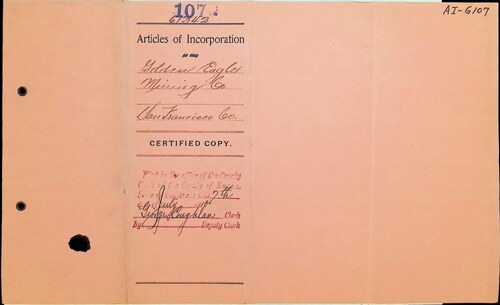 107
AI-6107
61343
Articles of Incorporation
OF THE
Golden Eagle
Mining Co
San Francisco Co.
CERTIFIED COPY.
Filed in the office of the County
Clerk of the County of
7th
of July
Clerk
By Deputy Clerk